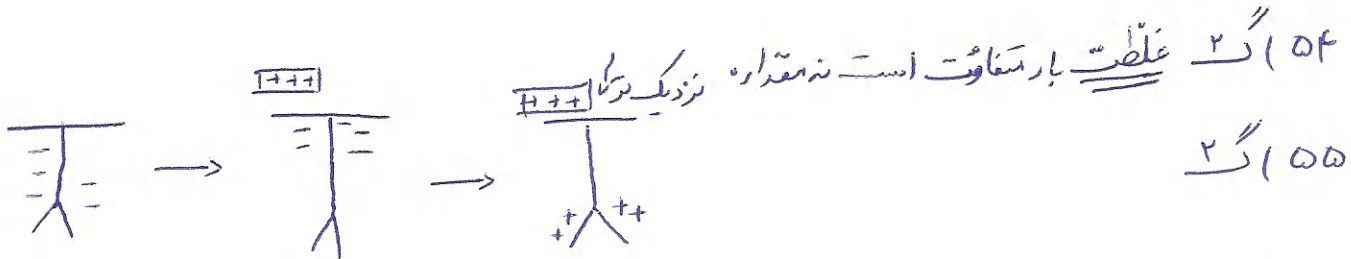 ۵۴) گ ۲ غلظت بار متفاوت است نه مقدار، نزدیک‌تر
۵۵) گ ۲
+++
- - - - -
- - - - -
+++
+ + ++